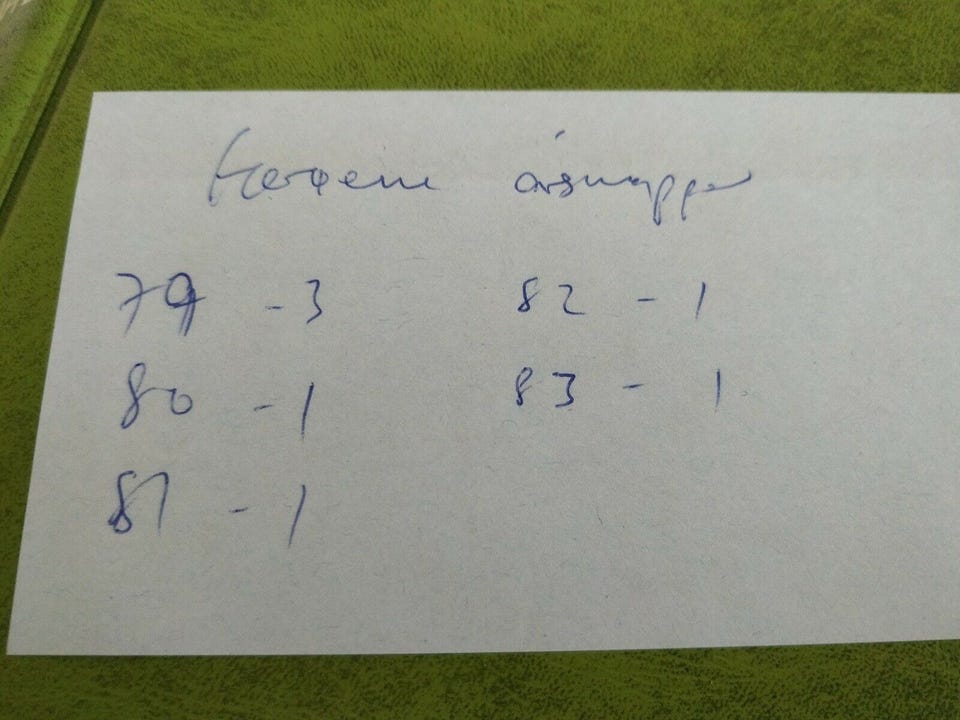 Færøerne årsmapper
79 - 3 82 - 1
80 - 1 83 - 1
81 - 1